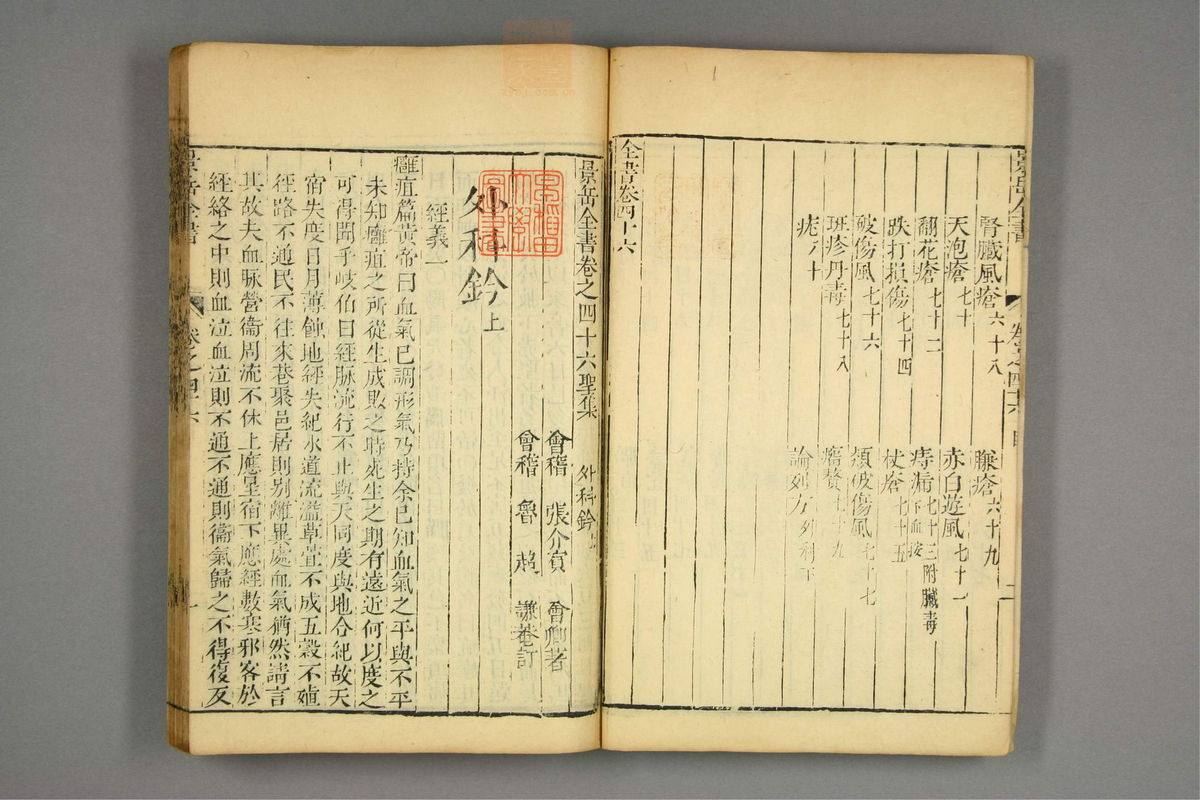 景岳全書 卷之四十六 目
腎臟風瘡六十八 臁瘡六十九
天泡瘡七十 赤白遊風七十一
翻花瘡七十二 痔漏七十三附臟毒
跌打損傷七十四 杖瘡七十五
破傷風七十六 類破傷風七十七
斑疹丹毒七十八 瘤贅七十九
疣八十 論列方外科下
全書卷四十六
景岳全書卷之四十六聖集 外科鈐上
會稽 張介賓 會卿著
會稽 魯超 謙菴訂
外科鈐上
經義一
癰疽篇黃帝曰血氣已調形氣乃持余已知血氣之平與不平
未知癰疽之所從生成敗之時死生之期有遠近何以度之
可得聞乎岐伯曰經脉流行不止與天同度與地合紀故天
宿失度日月薄蝕地經失紀水道流溢草萓不成五穀不殖
徑路不通民不往來巷聚邑居則別離異處血氣猶然請言
其故夫血脉營衞周流不休上應星宿下應經數寒邪客於
經絡之中則血泣血泣則不通不通則衞氣歸之不得復反
景岳全書 卷之四十六 一